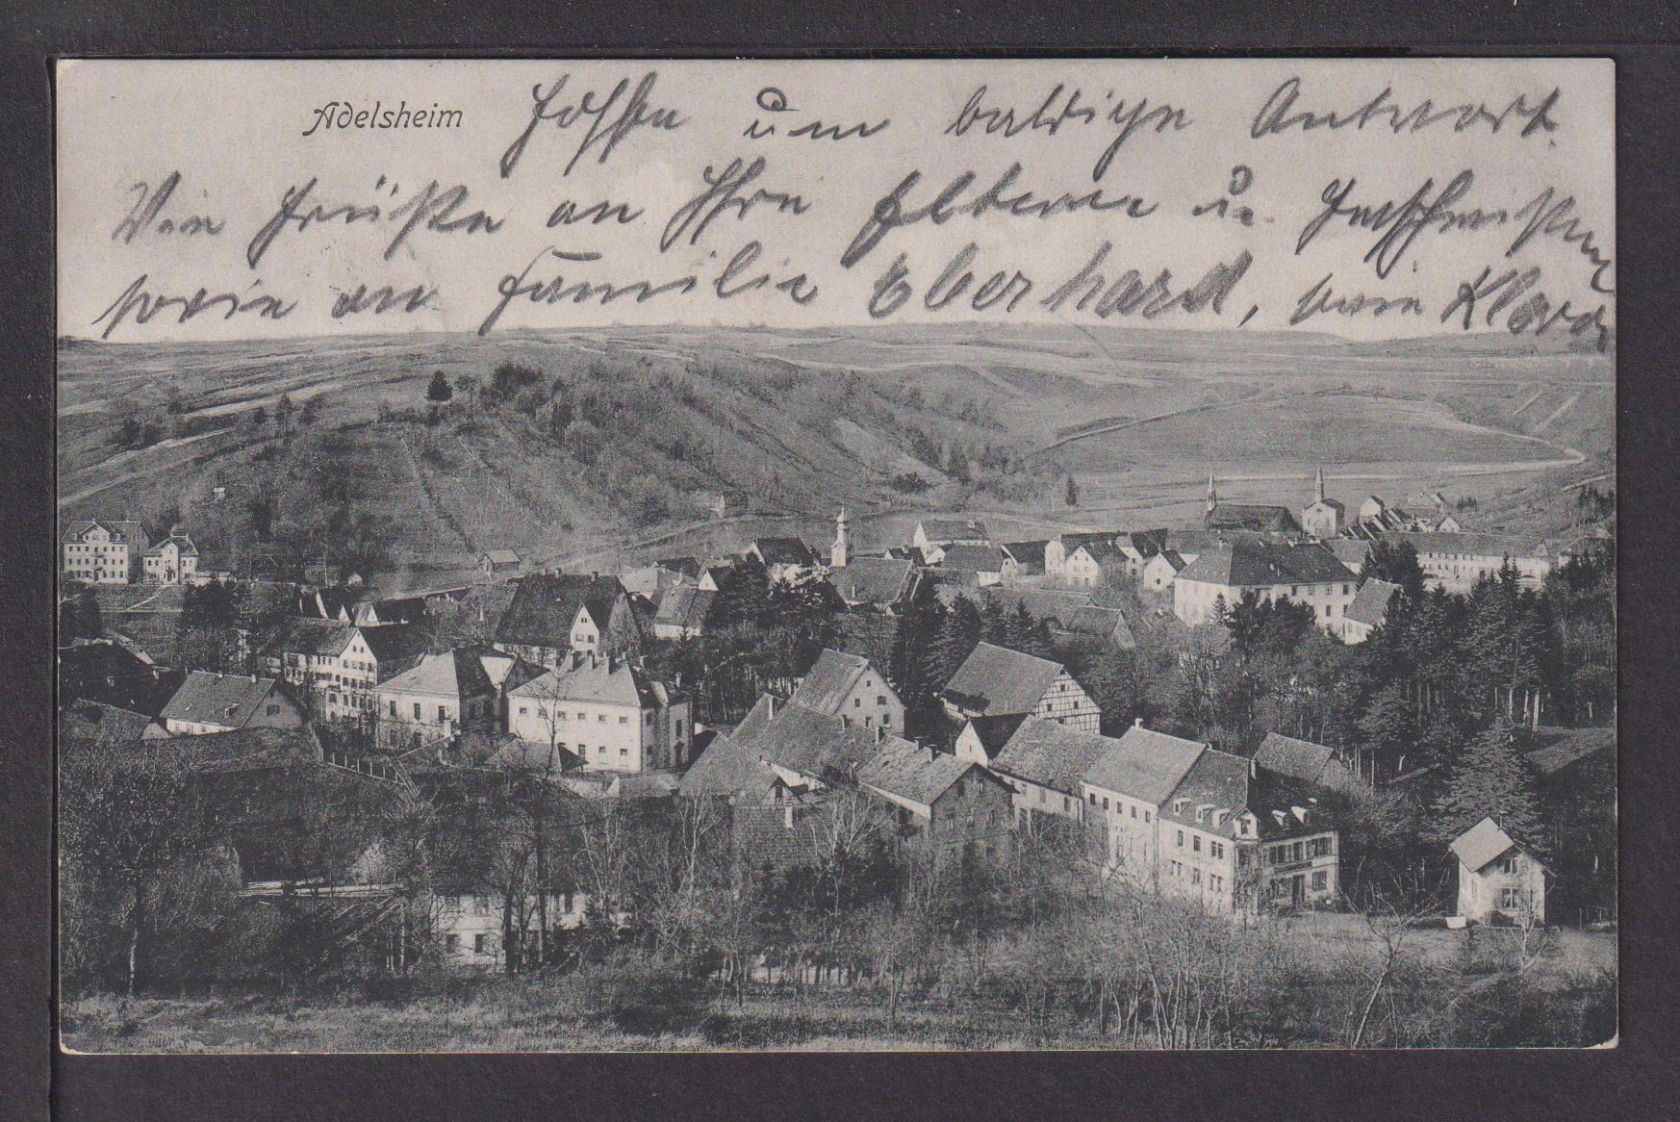 Adelsheim
hoffen um baldige Antwort.
Viele Grüße an Ihre Eltern u. Geschwister
sowie an Familie Eberhard,